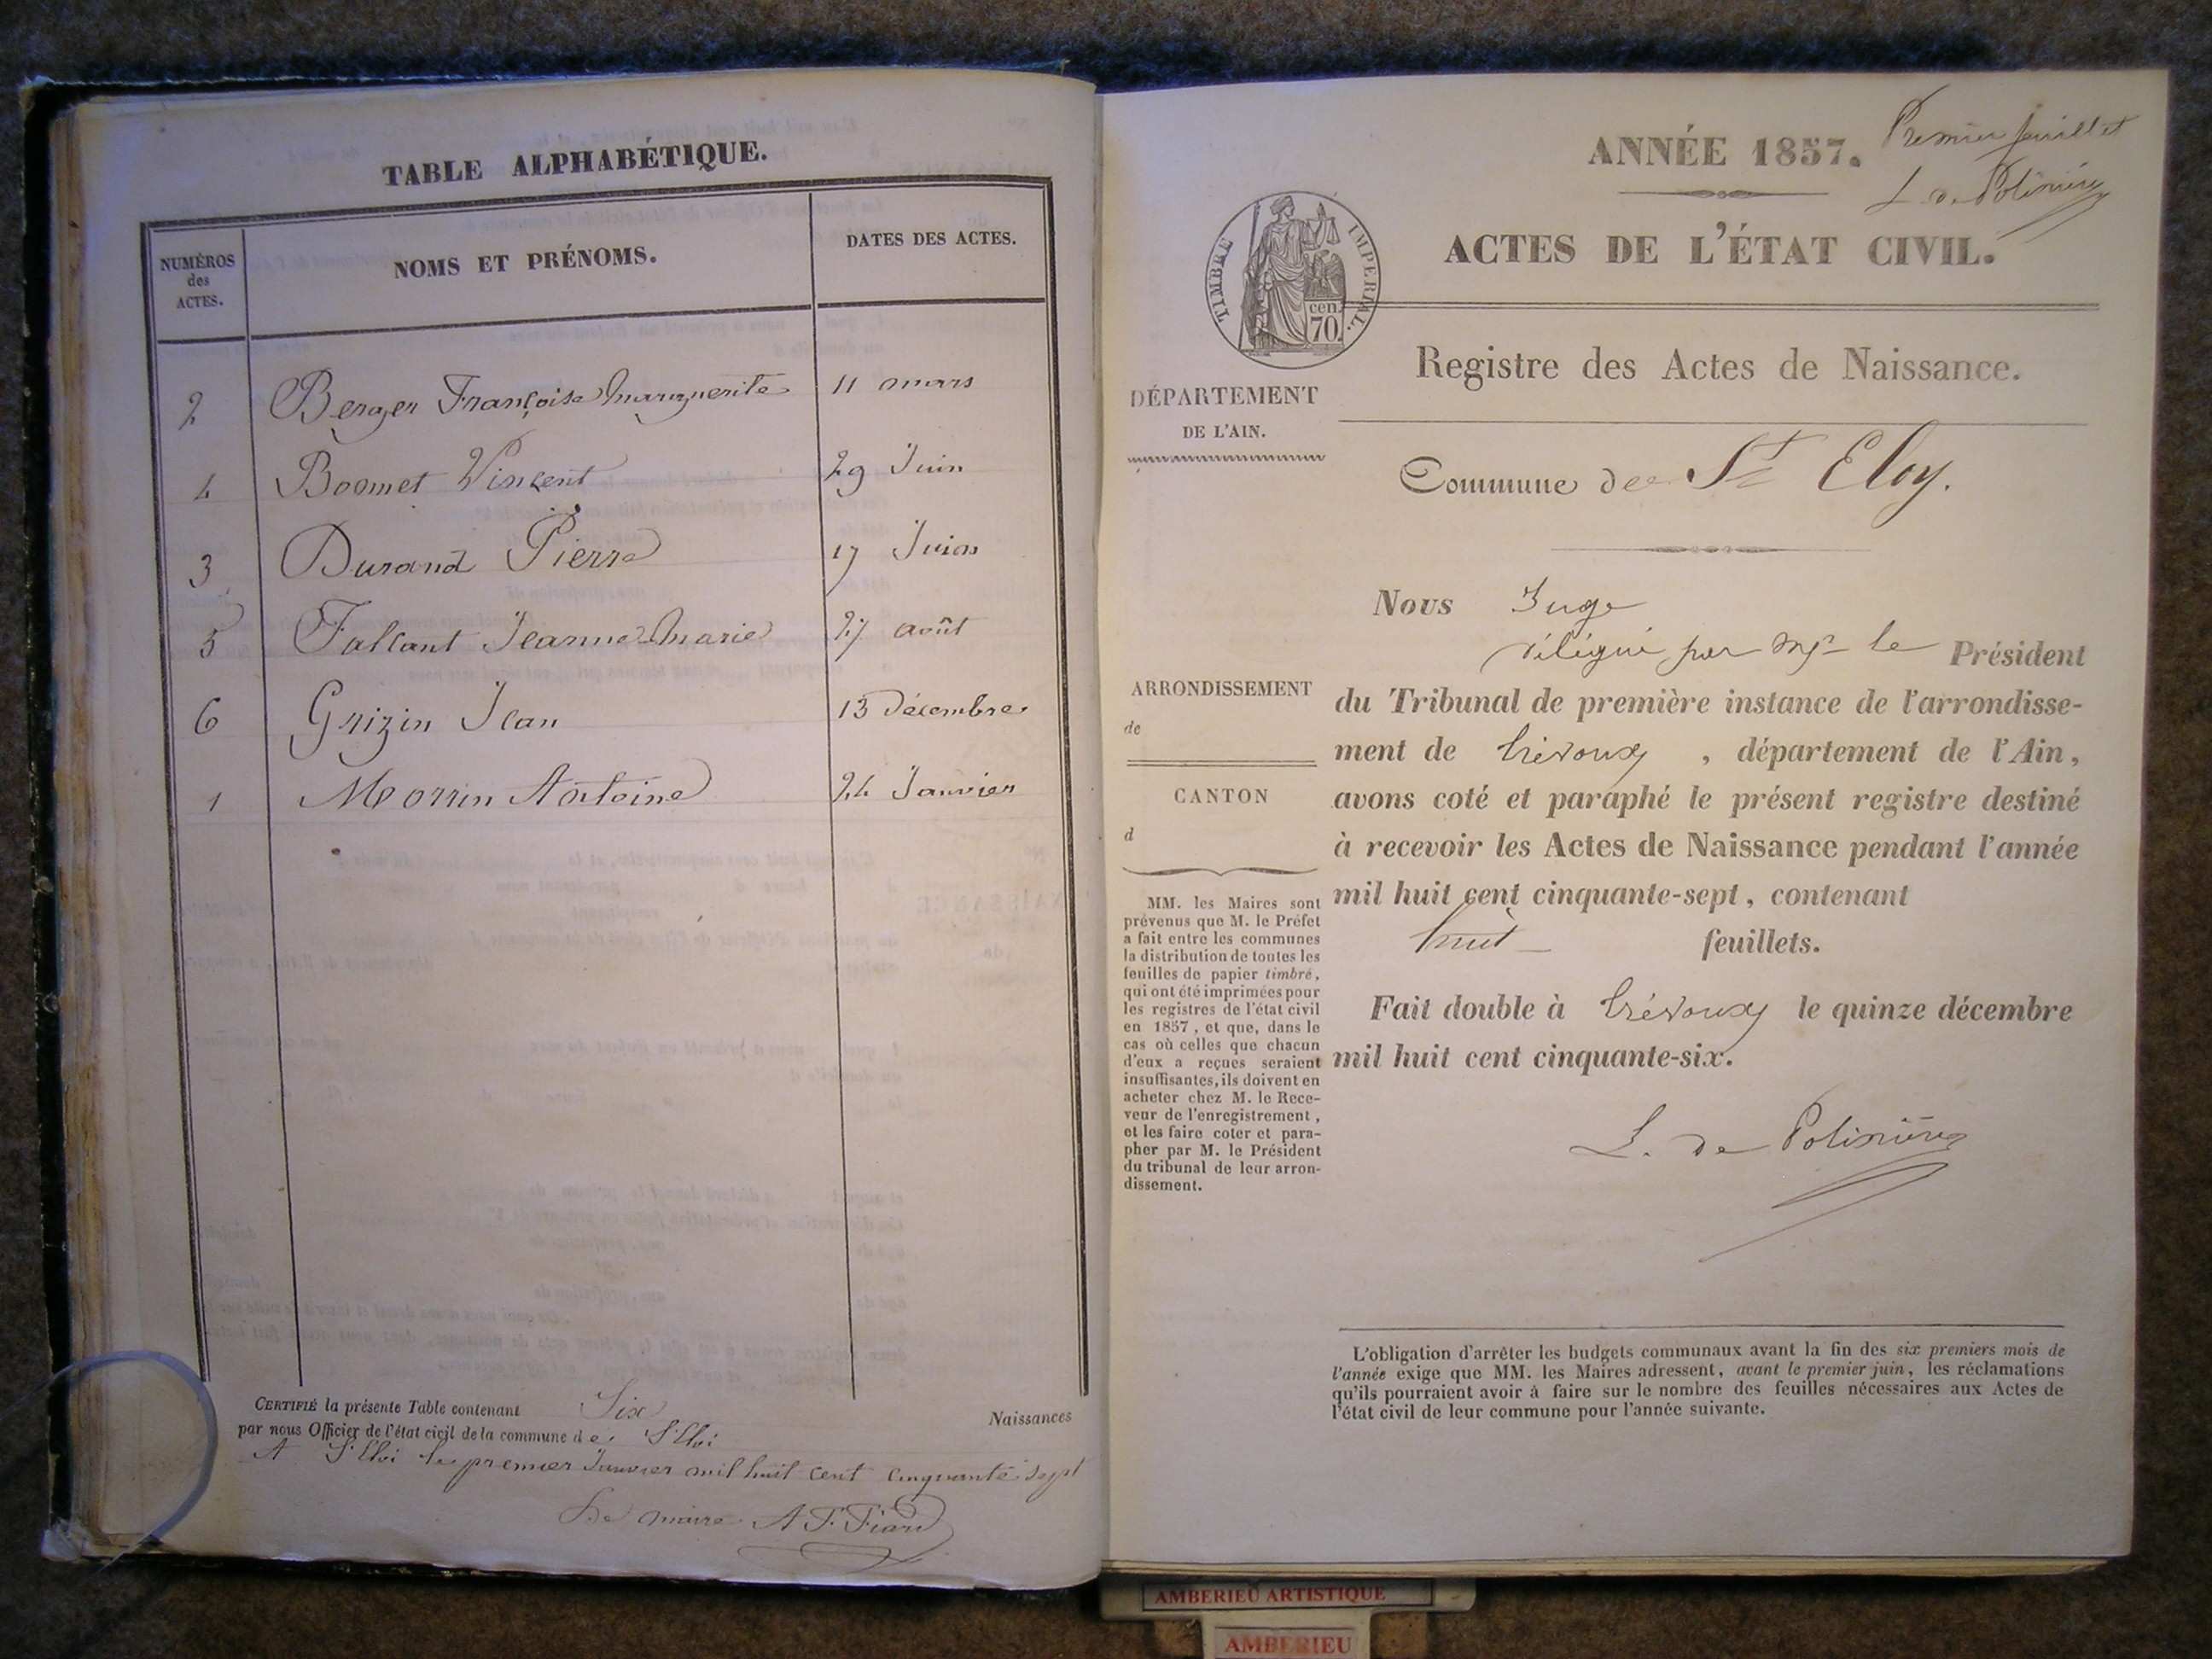 TABLE ALPHABÉTIQUE.
NUMÉROS
des
ACTES.
NOMS ET PRÉNOMS.
DATES DES ACTES.
2 Berger Françoise Marguerite 11 mars
4 Vincent 29 Juin
3 Durand Pierre 17 Juin
5 Jeanne Marie 27 août
6 Grizin Jean 13 Décembre
1 Morrin Antoine 24 Janvier
CERTIFIÉ la présente Table contenant Six Naissances
par nous Officier de l'état civil de la commune de St Eloi
A St Eloi le premier Janvier mil huit cent cinquante sept
Le maire A F Fiard
ANNÉE 1857.
Premier feuillet
L de Polinière
ACTES DE L'ÉTAT CIVIL.
TIMBRE IMPERIAL.
cen.
70.
Registre des Actes de Naissance.
DÉPARTEMENT
DE L'AIN.
Commune de St Eloy.
Nous Juge
délégué par Mr le Président
du Tribunal de première instance de l'arrondisse-
ment de Trévoux, département de l'Ain,
avons coté et paraphé le présent registre destiné
à recevoir les Actes de Naissance pendant l'année
mil huit cent cinquante-sept, contenant
huit feuillets.
Fait double à Trévoux le quinze décembre
mil huit cent cinquante-six.
L. de Polinière
ARRONDISSEMENT
de
CANTON
d
MM. les Maires sont
prévenus que M. le Préfet
a fait entre les communes
la distribution de toutes les
feuilles de papier timbré,
qui ont été imprimées pour
les registres de l'état civil
en 1857, et que, dans le
cas où celles que chacun
d'eux a reçues seraient
insuffisantes, ils doivent en
acheter chez M. le Rece-
veur de l'enregistrement,
et les faire coter et para-
pher par M. le Président
du tribunal de leur arron-
dissement.
L'obligation d'arrêter les budgets communaux avant la fin des six premiers mois de
l'année exige que MM. les Maires adressent, avant le premier juin, les réclamations
qu'ils pourraient avoir à faire sur le nombre des feuilles nécessaires aux Actes de
l'état civil de leur commune pour l'année suivante.
AMBERIEU ARTISTIQUE
AMBERIEU